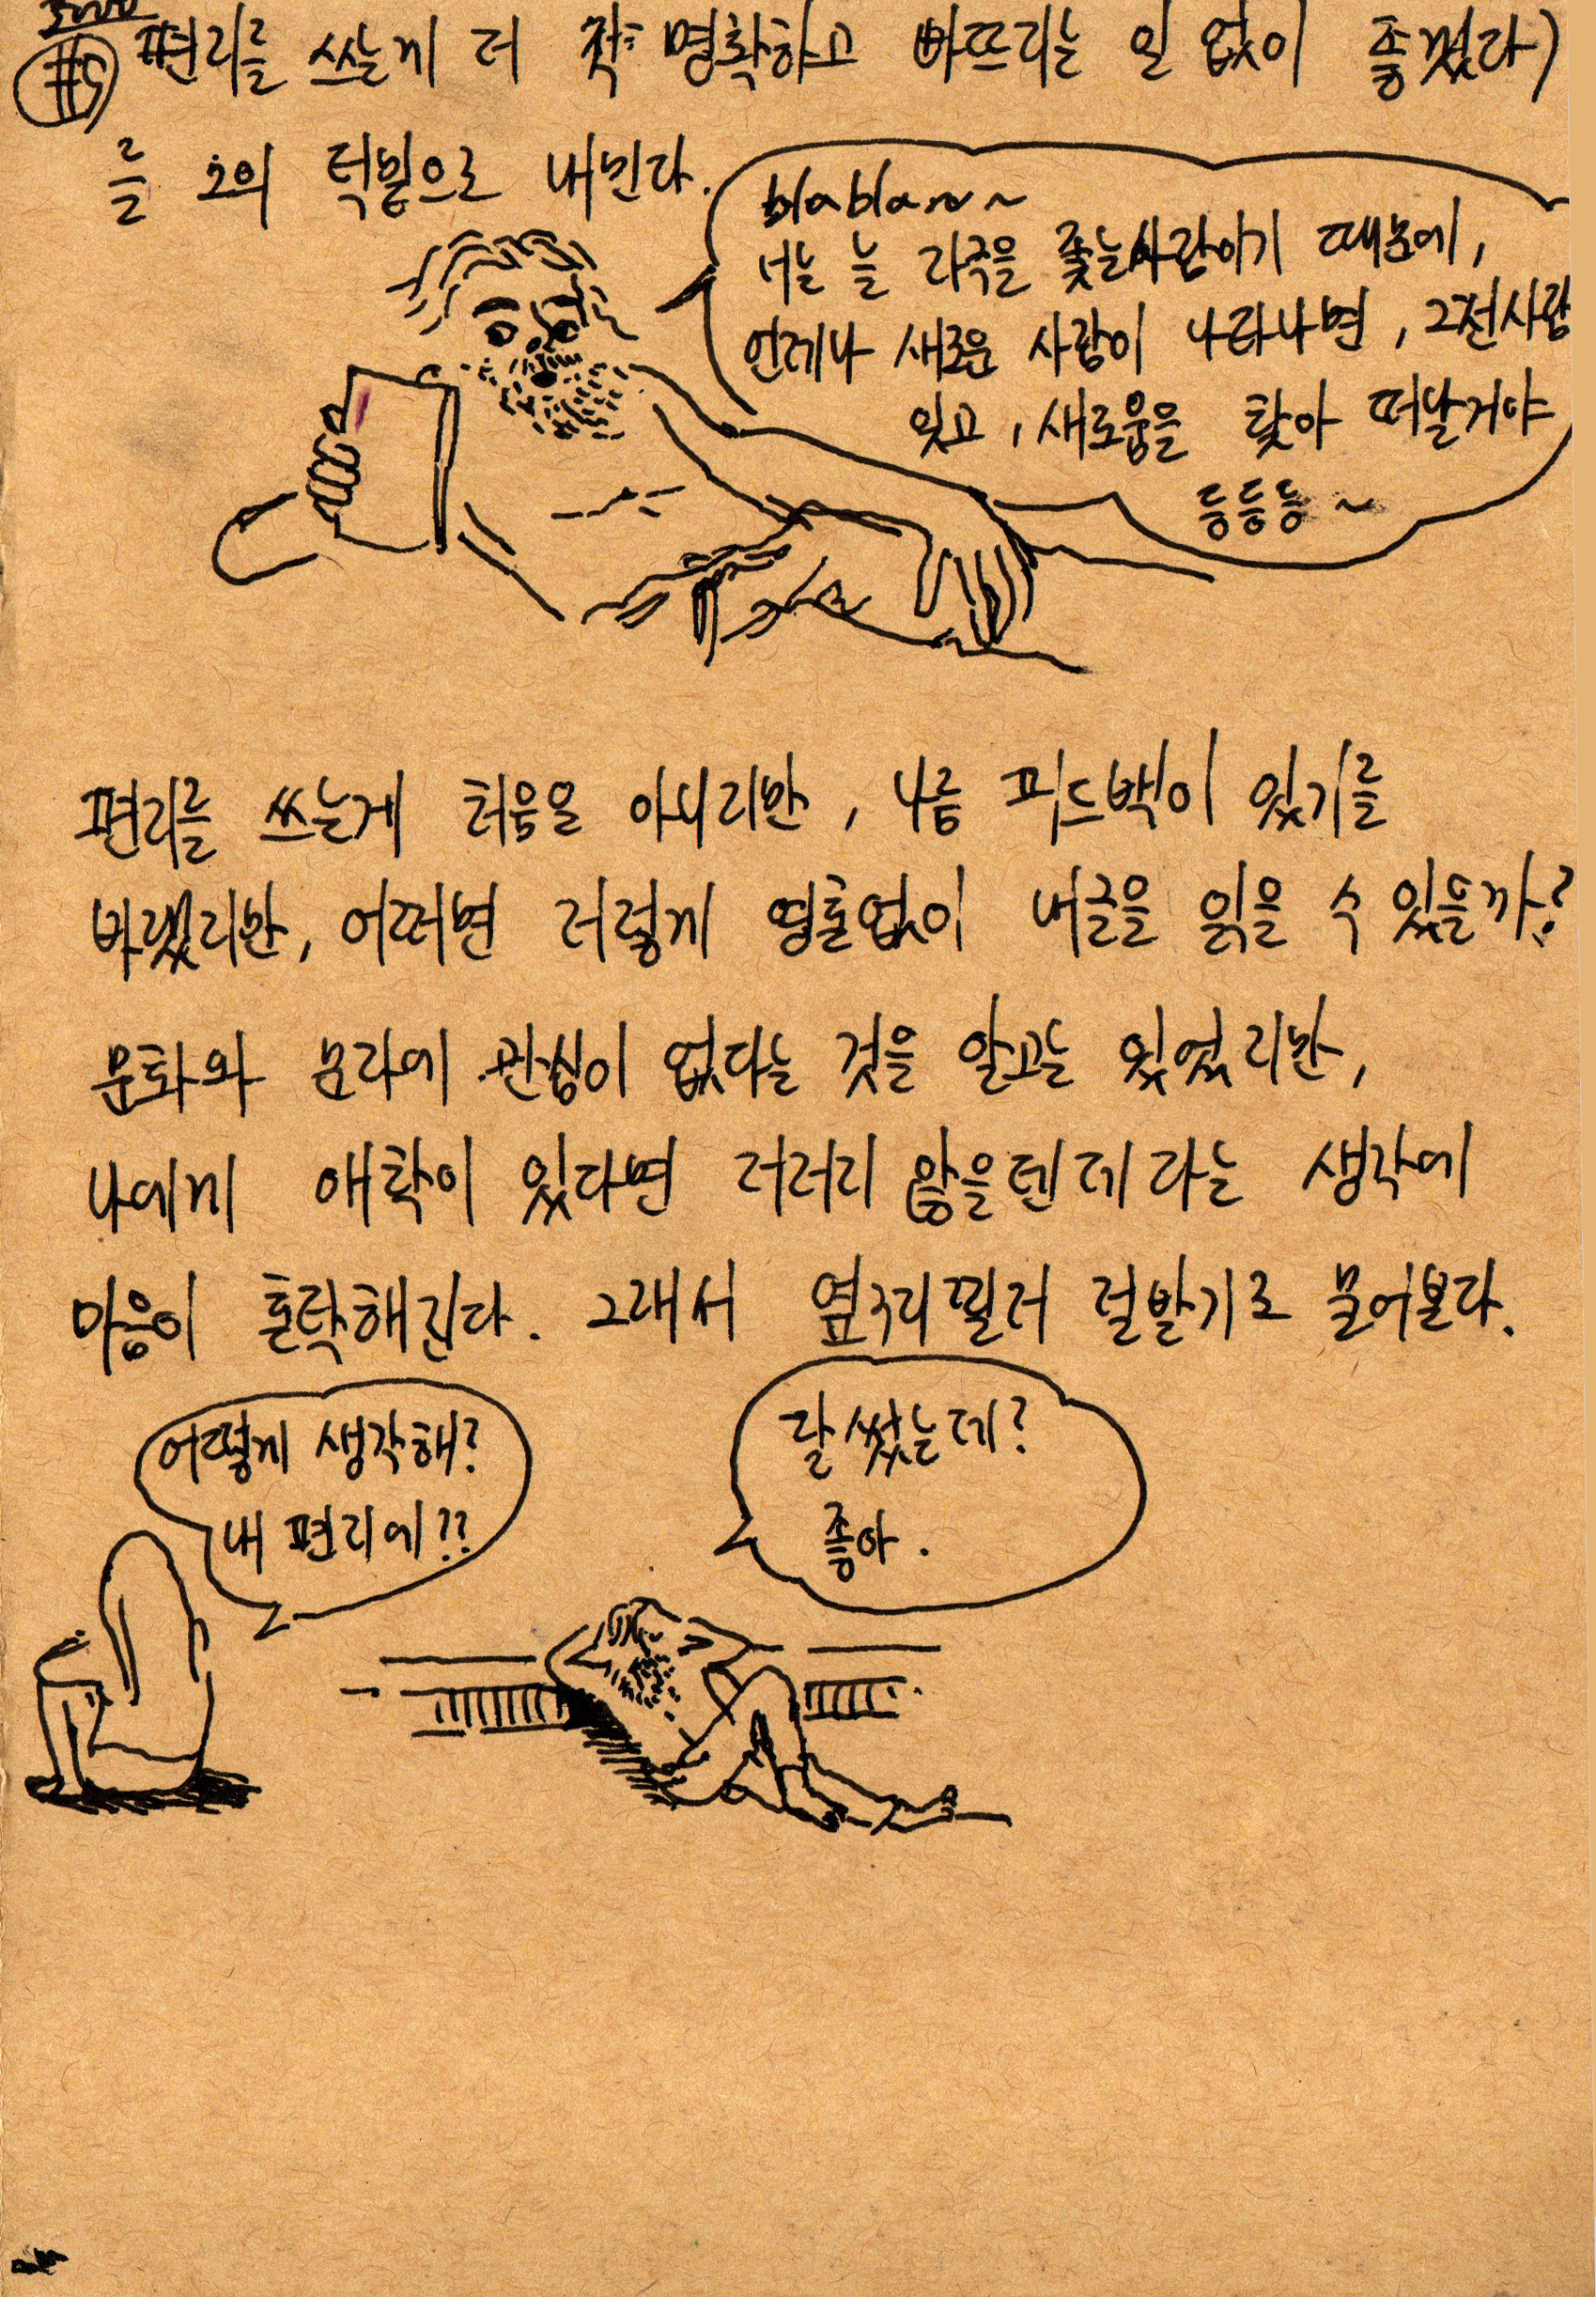 #5 편지를 쓰는게 더 명확하고 빠뜨리는 일 없이 좋겠다)
를 그의 턱밑으로 내민다.
blabla~~
너는 늘 자극을 좇는사람이기 때문에,
언제나 새로운 사람이 나타나면, 그전사람
잊고, 새로움을 찾아 떠날거야
등등등~
편지를 쓰는게 처음은 아니지만, 나름 피드백이 있기를
바랬지만, 어쩌면 저렇게 영혼없이 내글을 읽을 수 있을까?
문화와 문자에 관심이 없다는 것을 알고는 있었지만,
나에게 애착이 있다면 저러지 않을텐데라는 생각에
마음이 촐락해진다. 그래서 옆구리찔러 절받기로 물어본다.
어떻게 생각해?
내 편지에??
잘 썼는데?
좋아.